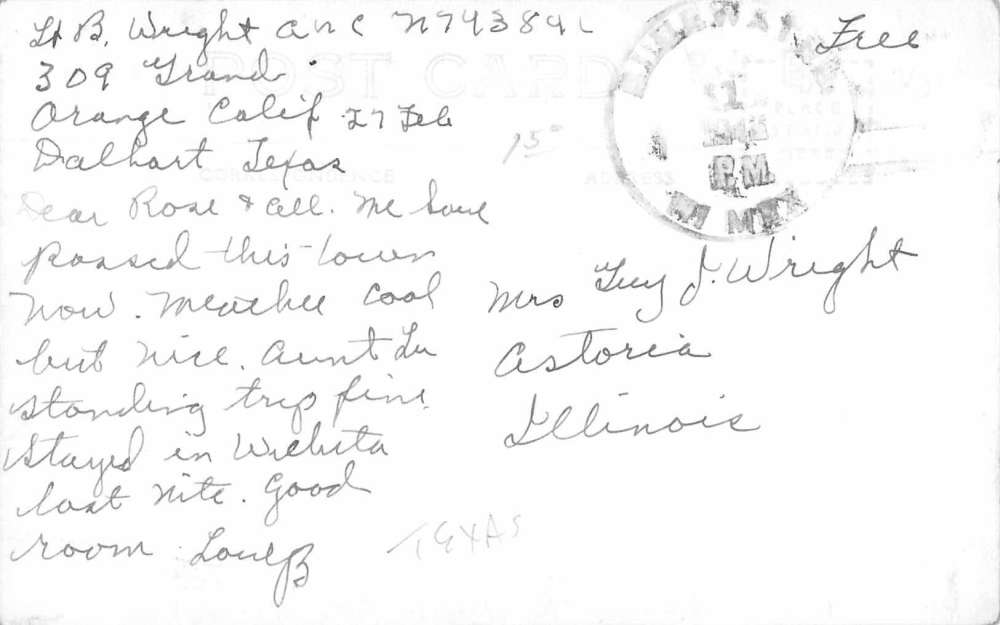 Lt B. Wright ANC N743841
Free
309 Grand
Orange Calif 27 Feb
Dalhart Texas
15
POST CARD
PLACE
CORRESPONDENCE
ADDRESS
1
1945
PM
N MEX
Dear Rose & all. We have
passed this town
now. Weather cool
but nice. Aunt Lu
standing trip fine.
Stayed in Wichita
last nite. Good
room Love B
Mrs Guy J. Wright
Astoria
Illinois
TEXAS